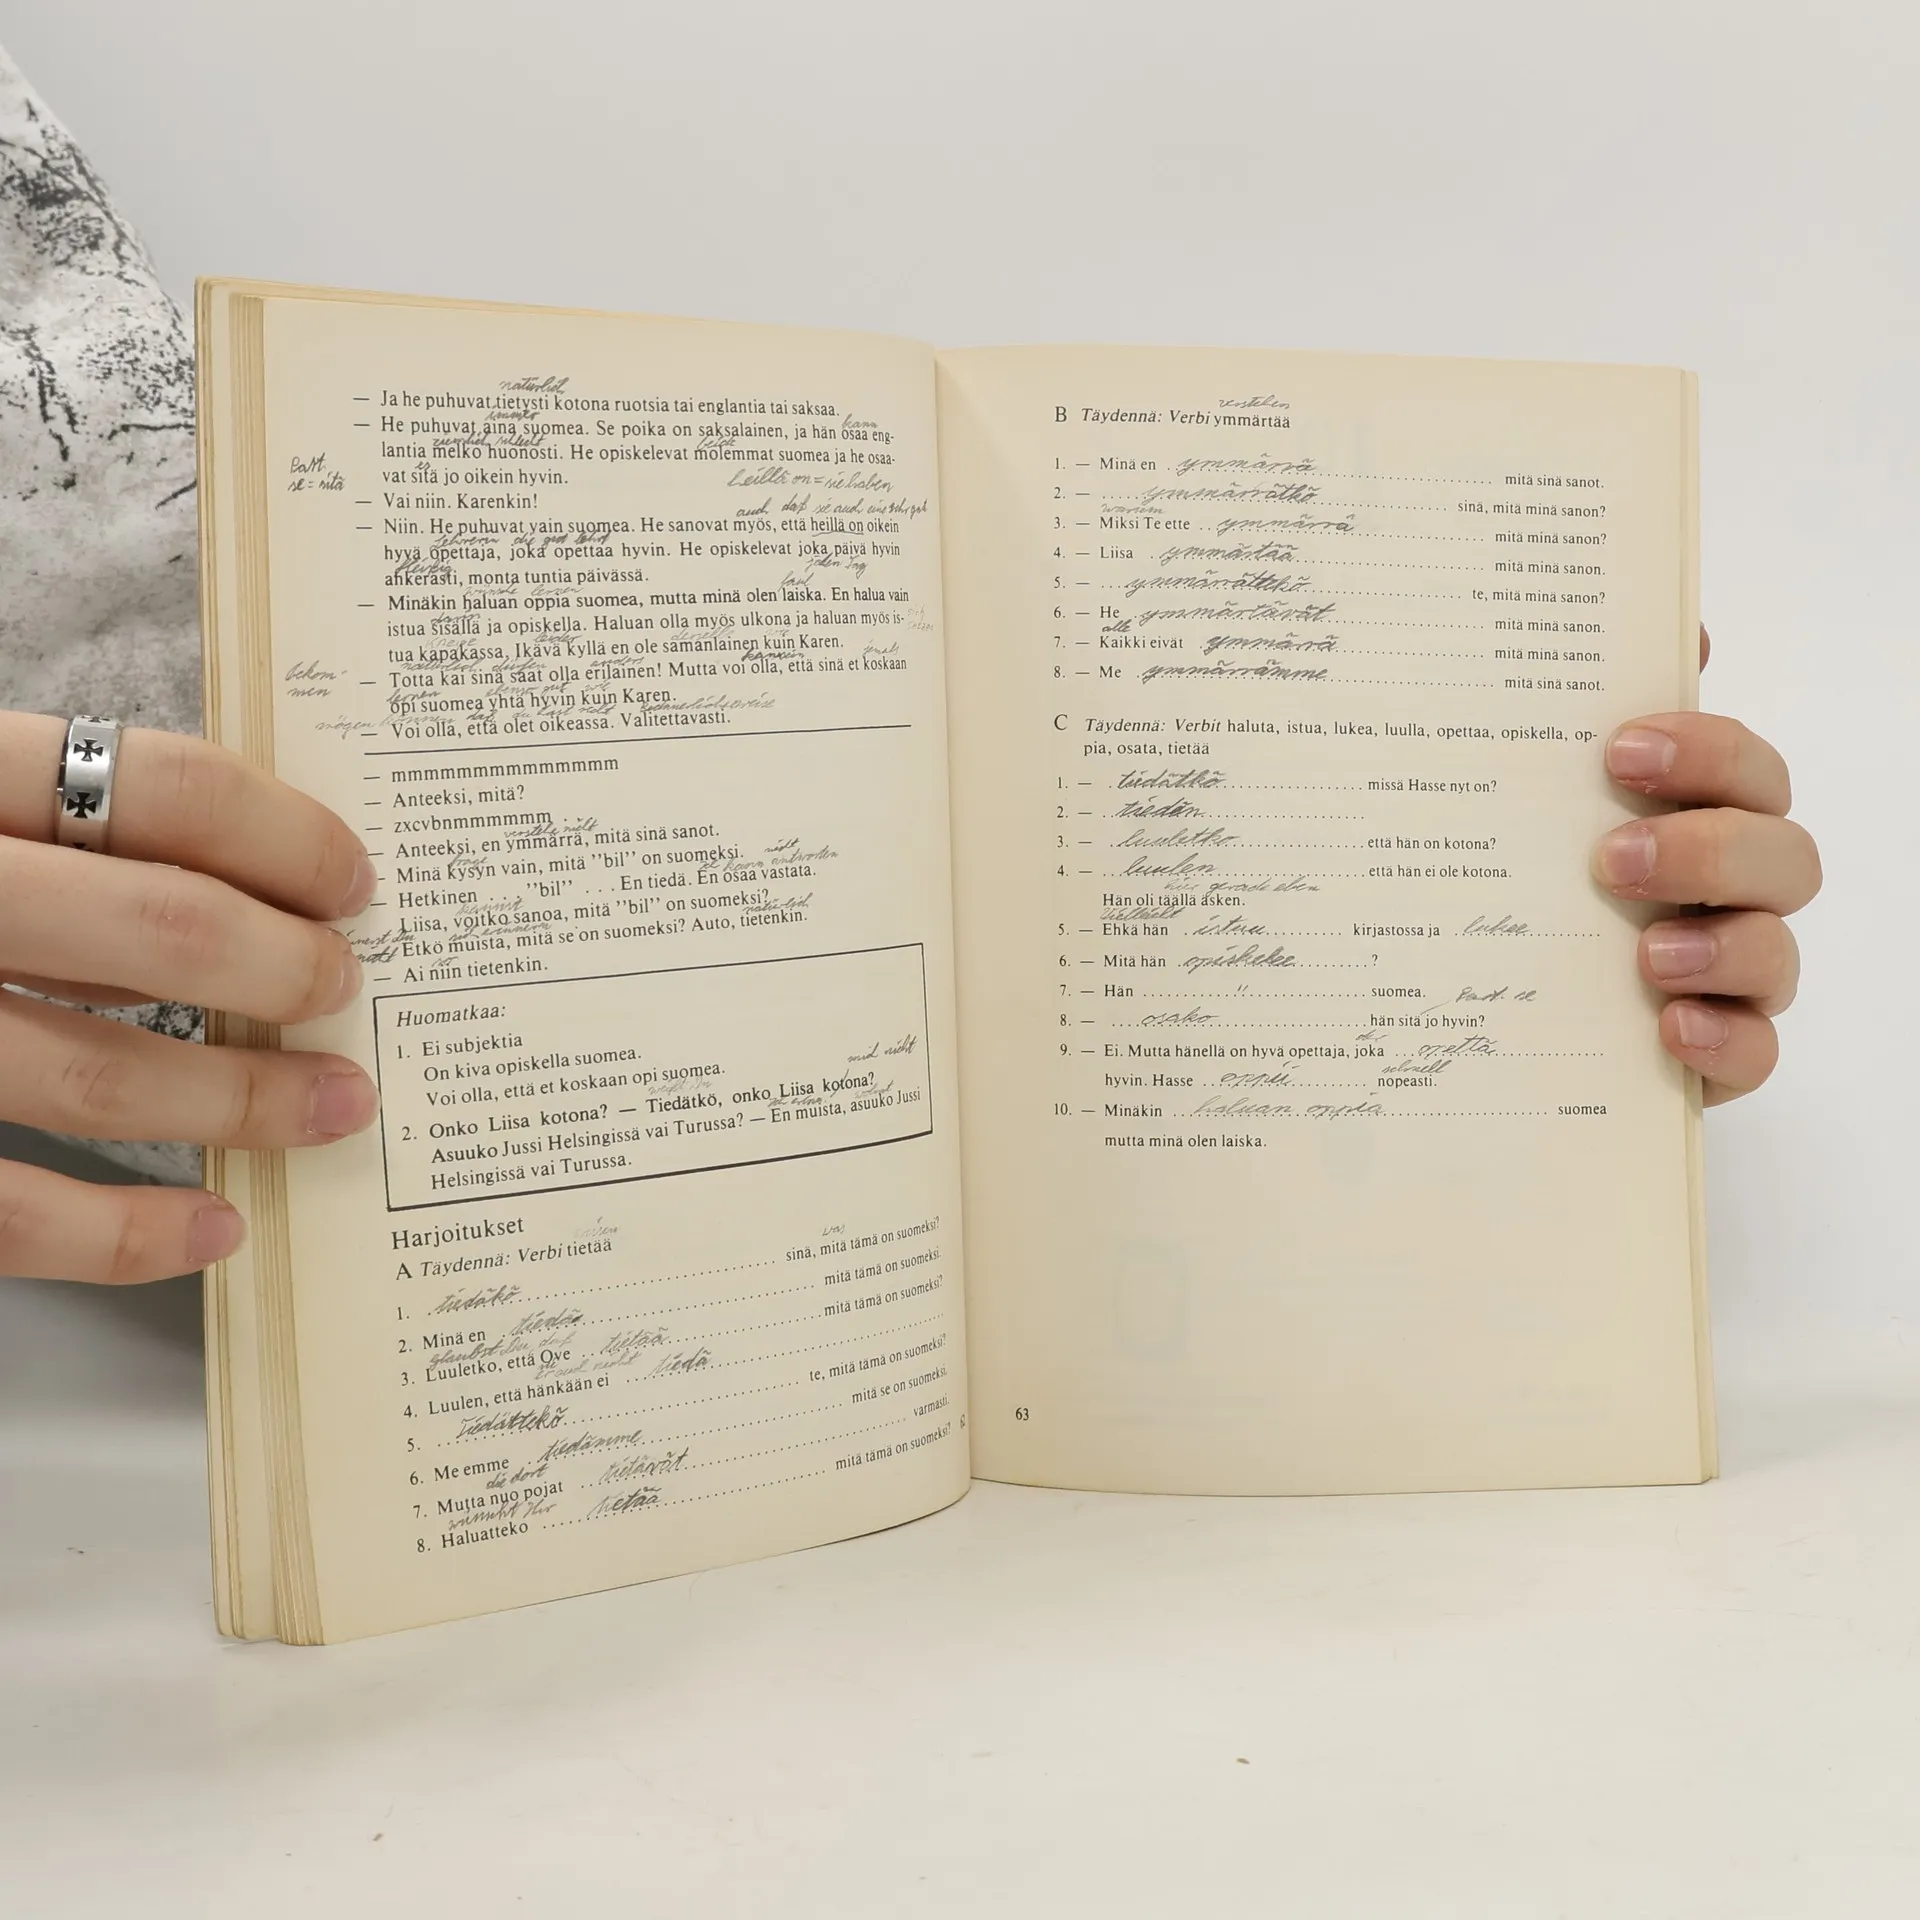 natürlich
— Ja he puhuvat tietysti kotona ruotsia tai englantia tai saksaa.
immer
kann
— He puhuvat aina suomea. Se poika on saksalainen, ja hän osaa eng-
ziemlich schlecht
beide
lantia melko huonosti. He opiskelevat molemmat suomea ja he osaa-
Part.
se = sitä
es
vat sitä jo oikein hyvin.
heillä on = sie haben
— Vai niin. Karenkin!
auch daß sie auch eine sehr gut
— Niin. He puhuvat vain suomea. He sanovat myös, että heillä on oikein
Lehrerin die gut lehrt
hyvä opettaja, joka opettaa hyvin. He opiskelevat joka päivä hyvin
fleißig
jeden Tag
ahkerasti, monta tuntia päivässä.
wünsche lernen
faul
— Minäkin haluan oppia suomea, mutta minä olen laiska. En halua vain
istua sisällä ja opiskella. Haluan olla myös ulkona ja haluan myös is-
Kneipe leider derselbe wie
tua kapakassa. Ikävä kyllä en ole samanlainen kuin Karen.
bekom-
men
natürlich dürfen anders
— Totta kai sinä saat olla erilainen! Mutta voi olla, että sinä et koskaan
lernen ebenso gut wie
opi suomea yhtä hyvin kuin Karen.
mögen können daß du hast recht
— Voi olla, että olet oikeassa. Valitettavasti.
— mmmmmmmmmmmmmm
— Anteeksi, mitä?
— zxcvbnmmmmmm
verstehe nicht
— Anteeksi, en ymmärrä, mitä sinä sanot.
frage
nicht
— Minä kysyn vain, mitä ”bil” on suomeksi.
ich kann antworten
— Hetkinen . . . ”bil” . . . En tiedä. En osaa vastata.
kannst
Liisa, voitko sanoa, mitä ”bil” on suomeksi?
natürlich
nicht
Etkö muista, mitä se on suomeksi? Auto, tietenkin.
— Ai niin tietenkin.
Huomatkaa:
1. Ei subjektia
On kiva opiskella suomea.
Voi olla, että et koskaan opi suomea.
2. Onko Liisa kotona? — Tiedätkö, onko Liisa kotona?
Asuuko Jussi Helsingissä vai Turussa? — En muista, asuuko Jussi
Helsingissä vai Turussa.
Harjoitukset
wissen
A Täydennä: Verbi tietää
was
1. tiedäkö sinä, mitä tämä on suomeksi?
2. Minä en tiedä mitä tämä on suomeksi.
glaubst Du, daß
3. Luuletko, että Ove tietää mitä tämä on suomeksi?
er auch nicht
4. Luulen, että hänkään ei tiedä
5. Tiedättekö te, mitä tämä on suomeksi?
6. Me emme tiedämme mitä se on suomeksi.
die dort
7. Mutta nuo pojat tietävät varmasti.
wünscht Ihr
8. Haluatteko tietää mitä tämä on suomeksi?
62
verstehen
B Täydennä: Verbi ymmärtää
1. — Minä en ymmärrä mitä sinä sanot.
2. — ymmärrätkö sinä, mitä minä sanon?
warum
3. — Miksi Te ette ymmärrä mitä minä sanon?
4. — Liisa ymmärtää mitä minä sanon.
5. — ymmärrättekö te, mitä minä sanon?
6. — He ymmärtävät mitä minä sanon.
alle
7. — Kaikki eivät ymmärrä mitä minä sanon.
8. — Me ymmärrämme mitä sinä sanot.
C Täydennä: Verbit haluta, istua, lukea, luulla, opettaa, opiskella, op-
pia, osata, tietää
1. — tiedätkö missä Hasse nyt on?
2. — tiedän
3. — luuletko että hän on kotona?
4. — luulen että hän ei ole kotona.
hier gerade eben
Hän oli täällä äsken.
vielleicht
5. — Ehkä hän istuu kirjastossa ja lukee
6. — Mitä hän opiskelee ?
7. — Hän " suomea.
Part. se
8. — osako hän sitä jo hyvin?
der
9. — Ei. Mutta hänellä on hyvä opettaja, joka opettä
schnell
hyvin. Hasse oppii nopeasti.
10. — Minäkin haluan oppia suomea
mutta minä olen laiska.
63